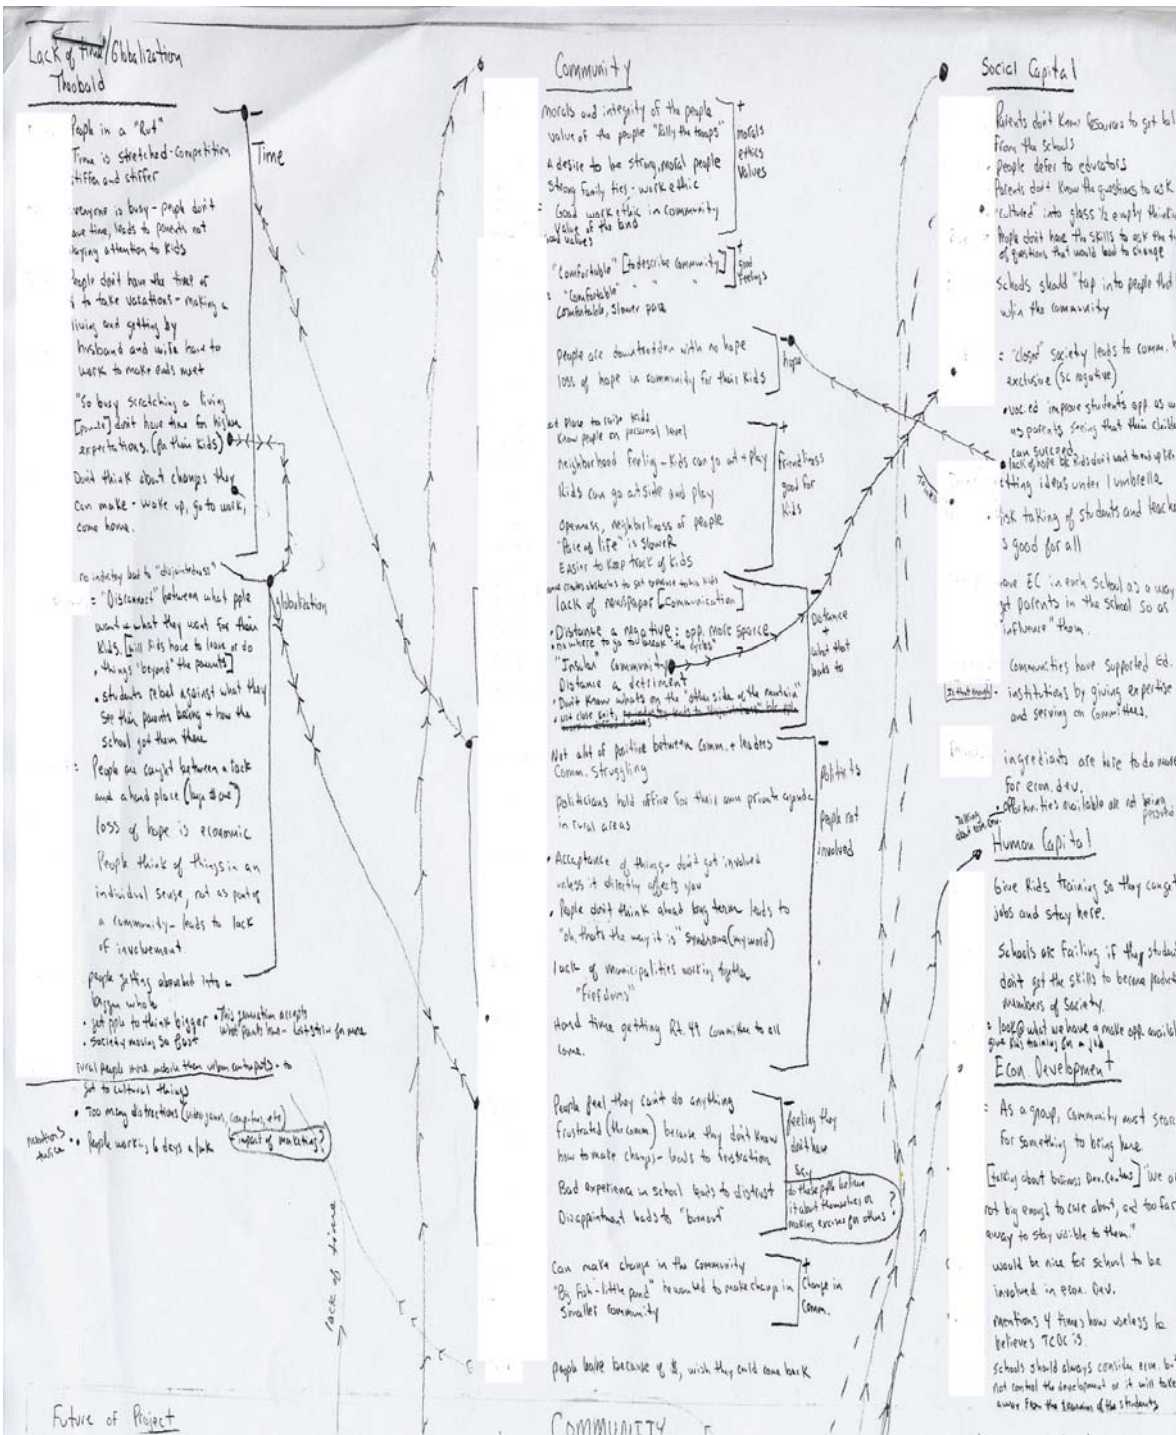 Lack of time/Globalization
Theobald
People in a "Rut"
Time is stretched - competition
stiffer and stiffer
Time
everyone is busy - people don't
have time, leads to parents not
paying attention to kids
People don't have the time or
$ to take vacations - making a
living and getting by
husband and wife have to
work to make ends meet
"So busy scratching a living
[parents] don't have time for higher
expectations. (for their kids)
Don't think about changes they
can make - wake up, go to work,
come home.
no industry lead to "disjointedness"
= "Disconnect" between what pple
want & what they want for their
kids. [will kids have to leave or do
things "beyond" the parents]
globalization
• students rebel against what they
see their parents being + how the
school got them there
= People are caught between a rock
and a hard place
loss of hope is economic
People think of things in an
individual sense, not as part of
a community - leads to lack
of involvement
people getting absorbed into a
bigger whole
• get pple to think bigger
• This generation accepts
what parents have -
• Society moving so fast
rural people more mobile than urban counterparts - to
get to cultural things
• Too many distractions (video games, computers, etc)
mentions twice
• People working 6 days a week
- impact of marketing?
lack of time
Future of Project
Community
morals and integrity of the people
value of the people "Rally the troops"
a desire to be strong, moral people
Strong family ties - work ethic
= Good work ethic in community
Value of the land
good values
+
morals
ethics
values
"Comfortable" [to describe community]
: "Comfortable" " "
comfortable, slower pace
+
Good
Feelings
people are downtrodden with no hope
loss of hope in community for their kids
-
hope
Place to raise kids
Know people on personal level
neighborhood feeling - Kids can go out + play
Kids can go outside and play
Openness, neighborliness of people
"Pace of life" is slower
Easier to keep track of kids
+
Friendliness
good for
kids
lack of newspaper [Communication]
• Distance a negative: opp. more sparce
• no where to go too break "the cycles"
"Insular" community
Distance a detriment
• Don't know whats on the "other side of the mountain"
• not close knit,
-
Distance
+
what that
leads to
Not alot of positive between Comm. + leaders
Comm. struggling
politicians hold office for their own private agenda
in rural areas
• Acceptance of things - don't get involved
unless it directly affects you
• People don't think ahead long term leads to
"oh, thats the way it is" syndrome (my word)
lack of municipalities working together
"Fiefdoms"
Hard time getting Rt. 49 committee to all
come.
-
politicians
people not
involved
People feel they can't do anything
frustrated (the comm) because they don't know
how to make change - leads to frustration
Bad experience in school leads to distrust
Disappointment leads to "burnout"
-
feeling they
don't have
say
do these pple believe
it about themselves or
making excuses for others?
Can make change in the community
"Big Fish - little pond" he wanted to make change in
smaller community
+
Change in
Comm.
people leave because of $, wish they could come back
COMMUNITY
Social Capital
Parents don't know resources to get
from the schools
• People defer to educators
Parents don't know the questions to ask
• "cultured" into glass 1/2 empty
People don't have the skills to ask the
of questions that would lead to change
Schools should "tap into people
w/in the community
= "closed" society leads to comm.
exclusive (SC negative)
• voc. ed improve student's opp. as
as parents seeing that their
can succeed.
• lack of hope bc kids don't want to end up
ideas under 1 umbrella
• risk taking of students and
is good for all
have EC in each School as a way
parents in the school so as
"influence" them.
Communities have supported Ed.
Is that enough?
institutions by giving expertise
and serving on committees.
ingredients are here to do more
for econ. dev.
• opportunities available are not being
Talking about econ. dev.
Human Capital
Give kids training so they can get
jobs and stay here.
Schools are failing if they
don't get the skills to become
members of Society.
: look @ what we have & make opp.
give kids training for a job
Econ. Development
= As a group, Community must
for something to bring here.
[talking about business Dev. Centers] "We
not big enough to care about, and too far
away to stay visible to them."
would be nice for school to be
involved in econ. Dev.
mentions 4 times how useless he
believes TCDC is.
schools should always consider econ.
not control the development or it will take
away from the learning of the students